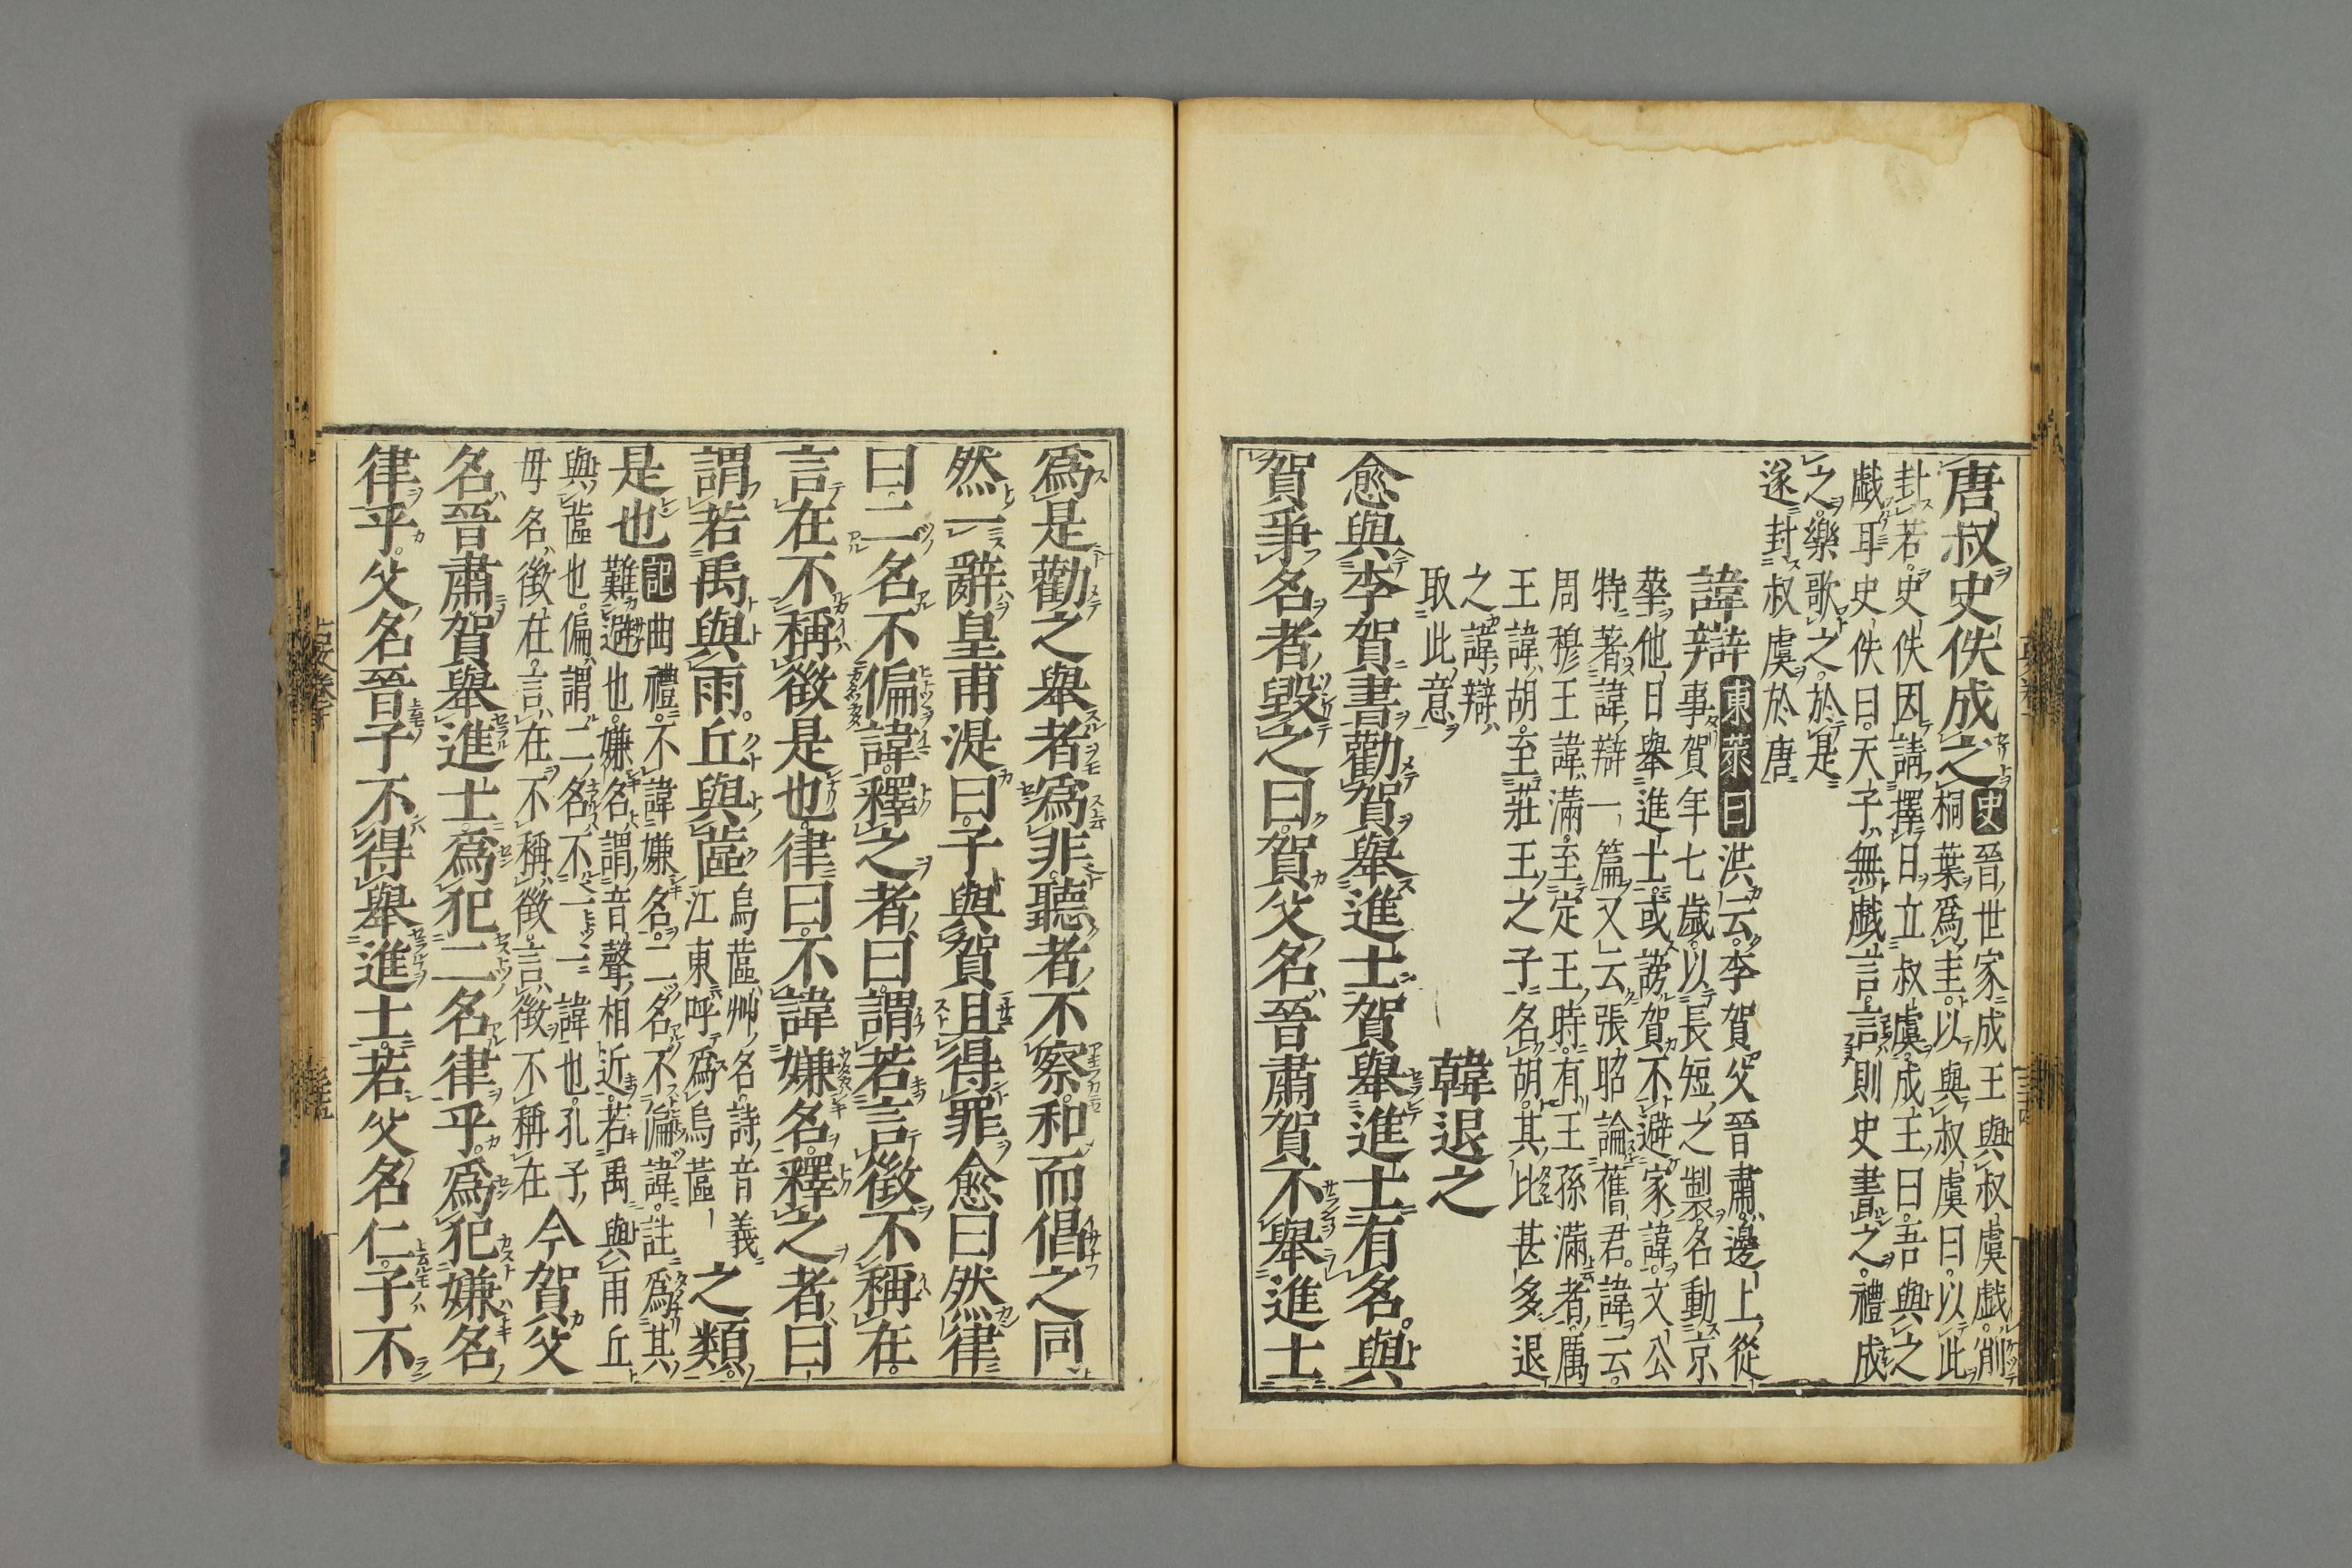 唐叔史佚成之史晉世家成王與叔虞戯削
桐葉爲圭以與叔虞曰以此
封若史佚因請擇日立叔虞成王曰吾與之
戯耳史佚曰天子無戯言言則史書之禮成
之樂歌之於是
遂封叔虞於唐
諱辯東萊曰洪云李賀父晉肅邊上從
事賀年七歲以長短之製名動京
華他日舉進士或謗賀不避家諱文公
特著諱辯一篇又云張昭論舊君諱云
周穆王諱滿至定王時有王孫滿者厲
王諱胡至莊王之子名胡其比甚多退
之諱辯
取此意
韓退之
愈與李賀書勸賀舉進士賀舉進士有名與
賀爭名者毀之曰賀父名晉肅賀不舉進士
爲是勸之舉者爲非聽者不察和而倡之同
然一辭皇甫湜曰子與賀且得罪愈曰然律
曰二名不偏諱釋之者曰謂若言徵不稱在
言在不稱徵是也律曰不諱嫌名釋之者曰
謂若禹與雨丘與蓲烏蓲艸名詩音義
江東呼爲烏蓲之類
是也記曲禮不諱嫌名二名不徧諱註爲其
難避也嫌名謂音聲相近若禹與雨丘
與蓲也偏謂二名不一一諱也孔子
毋名徵在言在不稱徵言徵不稱在今賀父
名晉肅賀舉進士爲犯二名律乎爲犯嫌名
律乎父名晉子不得舉進士若父名仁子不